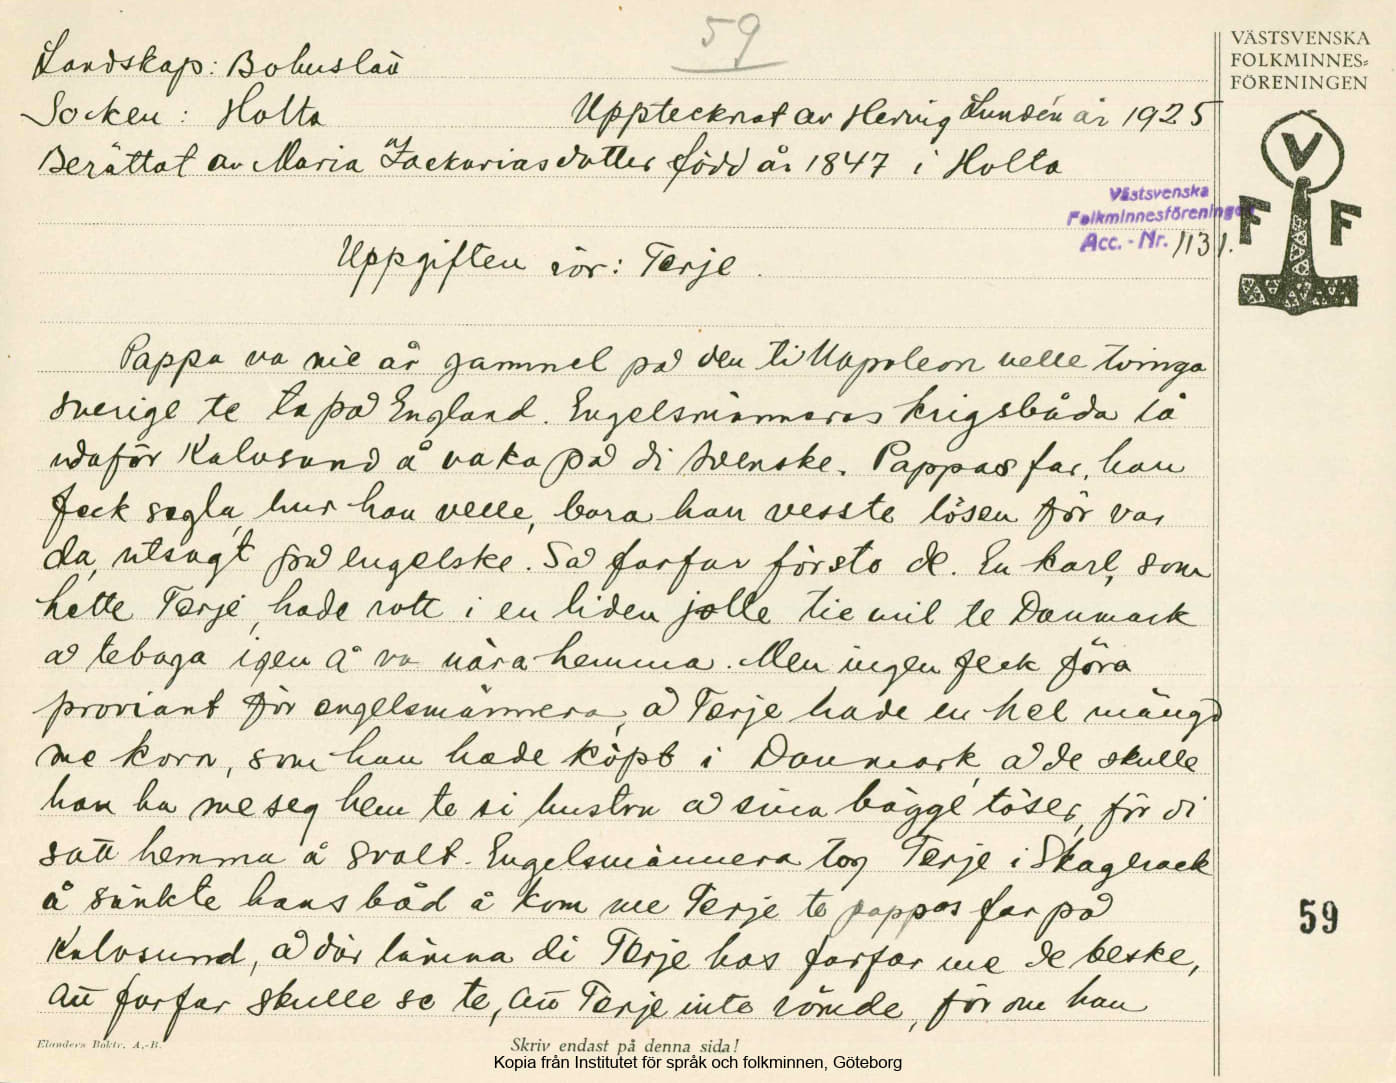 59
VÄSTSVENSKA
FOLKMINNES=
FÖRENINGEN
V
F F
Landskap: Bohuslän
Socken: Holta Upptecknat av Hervig Lundén år 1925
Berättat av Maria Zackariasdotter född år 1847 i Holta
Västsvenska
Folkminnesföreningen
Acc. - Nr. 1131.
Uppgiften rör: Terje.
Pappa va nie år gammel på den ti Napoleon velle tvinga
sverige te ta på England. Engelsmännaras krigsbåda lå
udaför Kalvsund å vaka på di Svenske. Pappas far, han
feck segla, hur han velle, bara han vesste lösen för var
da, utsagt på engelske. Så farfar försto de. En karl, som
hette Terje, hade rott i en liden jolle tie mil te Danmark
å tebaga igen å va nära hemma. Men ingen feck föra
proviant för engelsmännera, å Terje hade en hel mängd
me korn, som han hade köpt i Danmark, å de skulle
han ha me seg hem te si hustru å sina bägge töser, för di
satt hemma å svalt. Engelsmännera tog Terje i Skagerack
å sänkte hans båd å kom me Terje te pappas far på
Kalvsund, å där lämna di Terje hos farfar me de beske,
att farfar skulle se te, att Terje inte römde, för om han
Elanders Boktr. A.-B. Skriv endast på denna sida!
59
Kopia från Institutet för språk och folkminnen, Göteborg